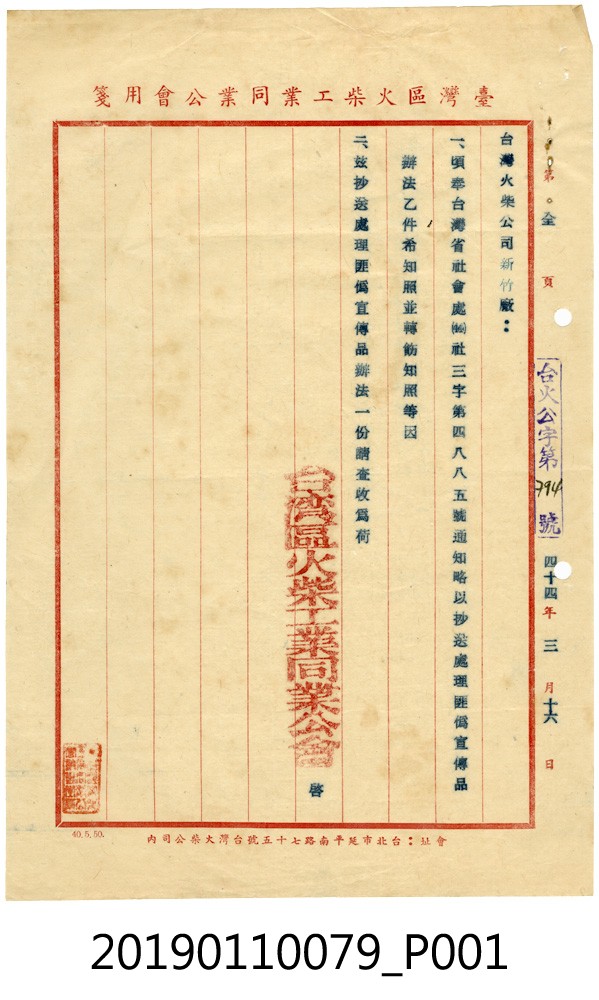 臺灣區火柴工業同業公會用箋
第 全 頁
台火公字第794號
四十四年三月十六日
台灣火柴公司新竹廠：
一、頃奉台灣省社會處社三字第四八八五號通知略以抄送處理匪偽宣傳品
辦法乙件希知照並轉飭知照等因
二、玆抄送處理匪偽宣傳品辦法一份請查收為荷
台灣區火柴工業同業公會
啓
40.5,50.
會址：台北市延平南路七十五號台灣火柴公司內
20190110079_P001